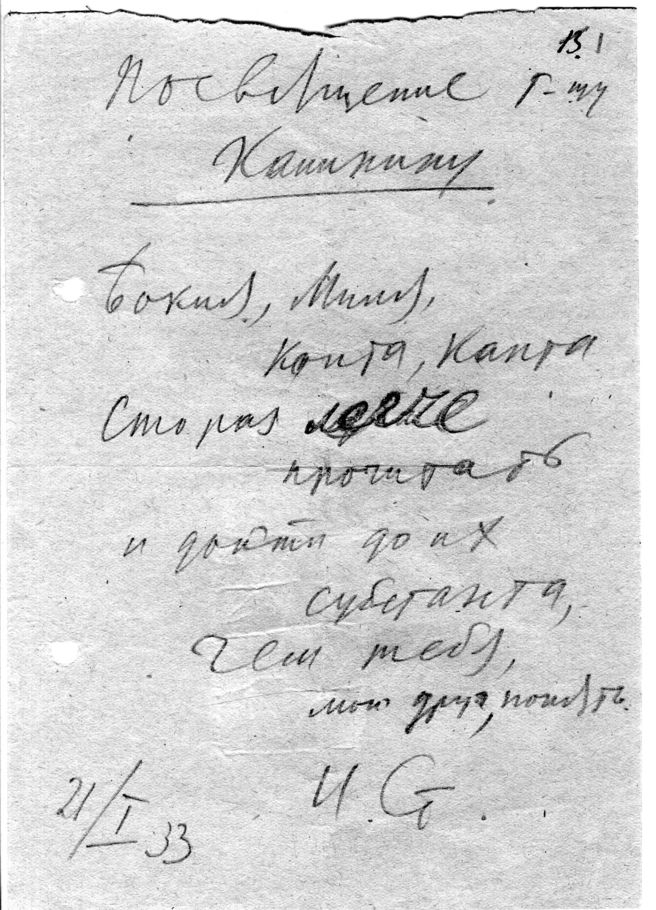 13 1
Посвящение Г-ну
Кашкину
Бокля, Милля,
Конта, Канта
Сто раз легче
прочитать
и дойти до их
субстанта,
Чем тебя,
мой друг, понять.
И. С.
21/I 33